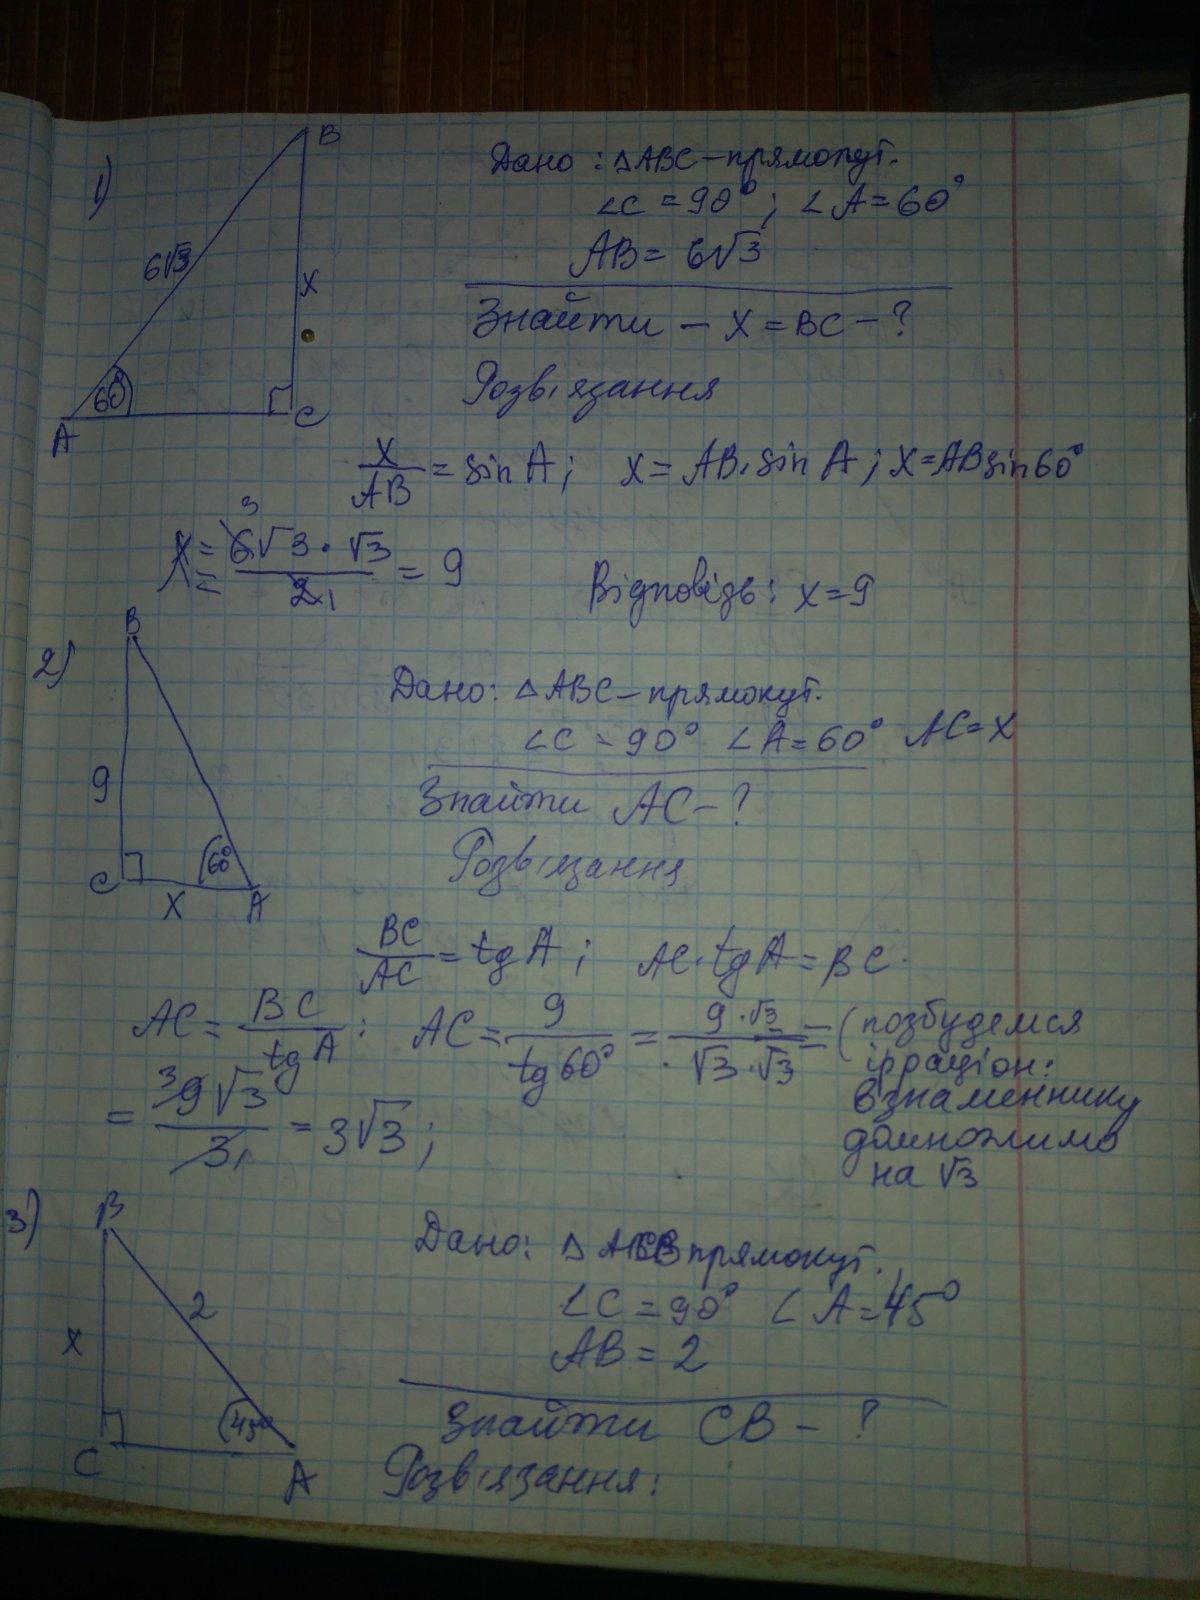 1)
B
6√3
X
60°
A
C
Дано: △ABC – прямокут.
∠C = 90°; ∠A = 60°
AB = 6√3
Знайти – X = BC – ?
Розв'язання
X/AB = sin A; X = AB · sin A; X = AB sin 60°
X = 6√3 · √3 / 2 = 9
3
1
Відповідь: x = 9
2)
B
9
60°
C
X
A
Дано: △ABC – прямокут.
∠C = 90° ∠A = 60° AC = X
Знайти AC – ?
Розв'язання
BC/AC = tg A; AC · tg A = BC.
AC = BC/tg A; AC = 9/tg 60° = 9 · √3 / √3 · √3 = (позбудемся
ірраціон:
в знаменнику
домножимо
на √3
= 9√3/3 = 3√3;
3
1
3)
B
2
X
45°
C
A
Дано: △ прямокут.
∠C = 90° ∠A = 45°
AB = 2
Знайти CB – ?
Розв'язання: